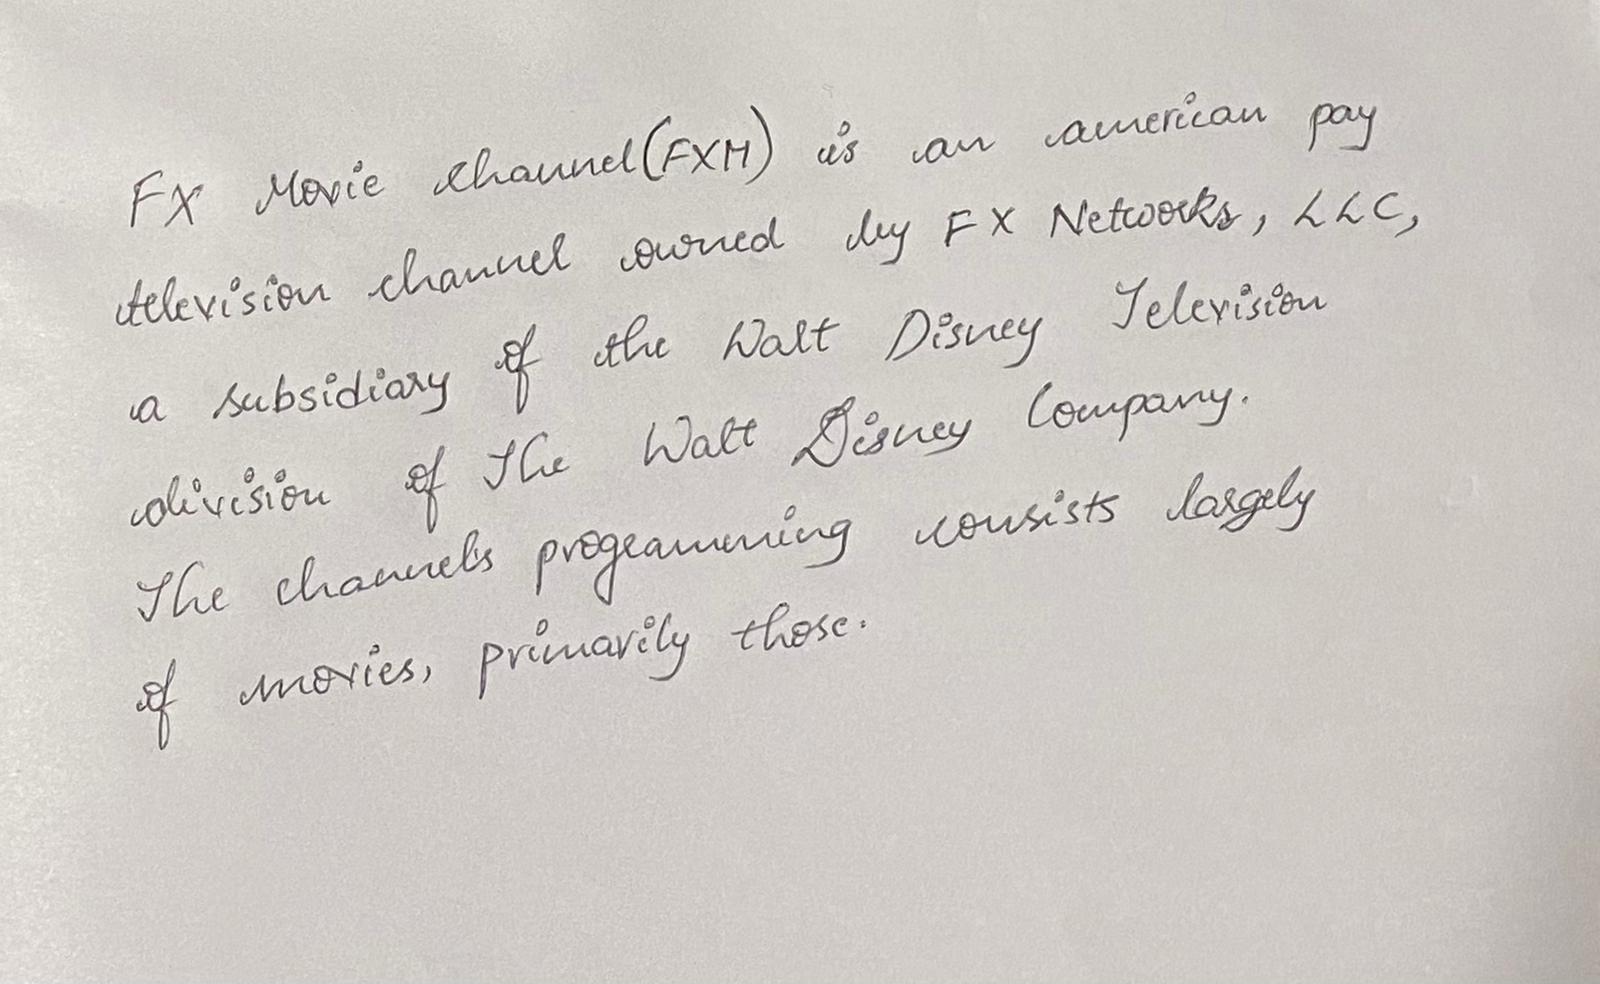 FX Movie channel(FXM) is an american pay
television channel owned by FX Networks, LLC,
a subsidiary of the Walt Disney Television
division of The Walt Disney Company.
The channel's programming consists largely
of movies, primarily those.